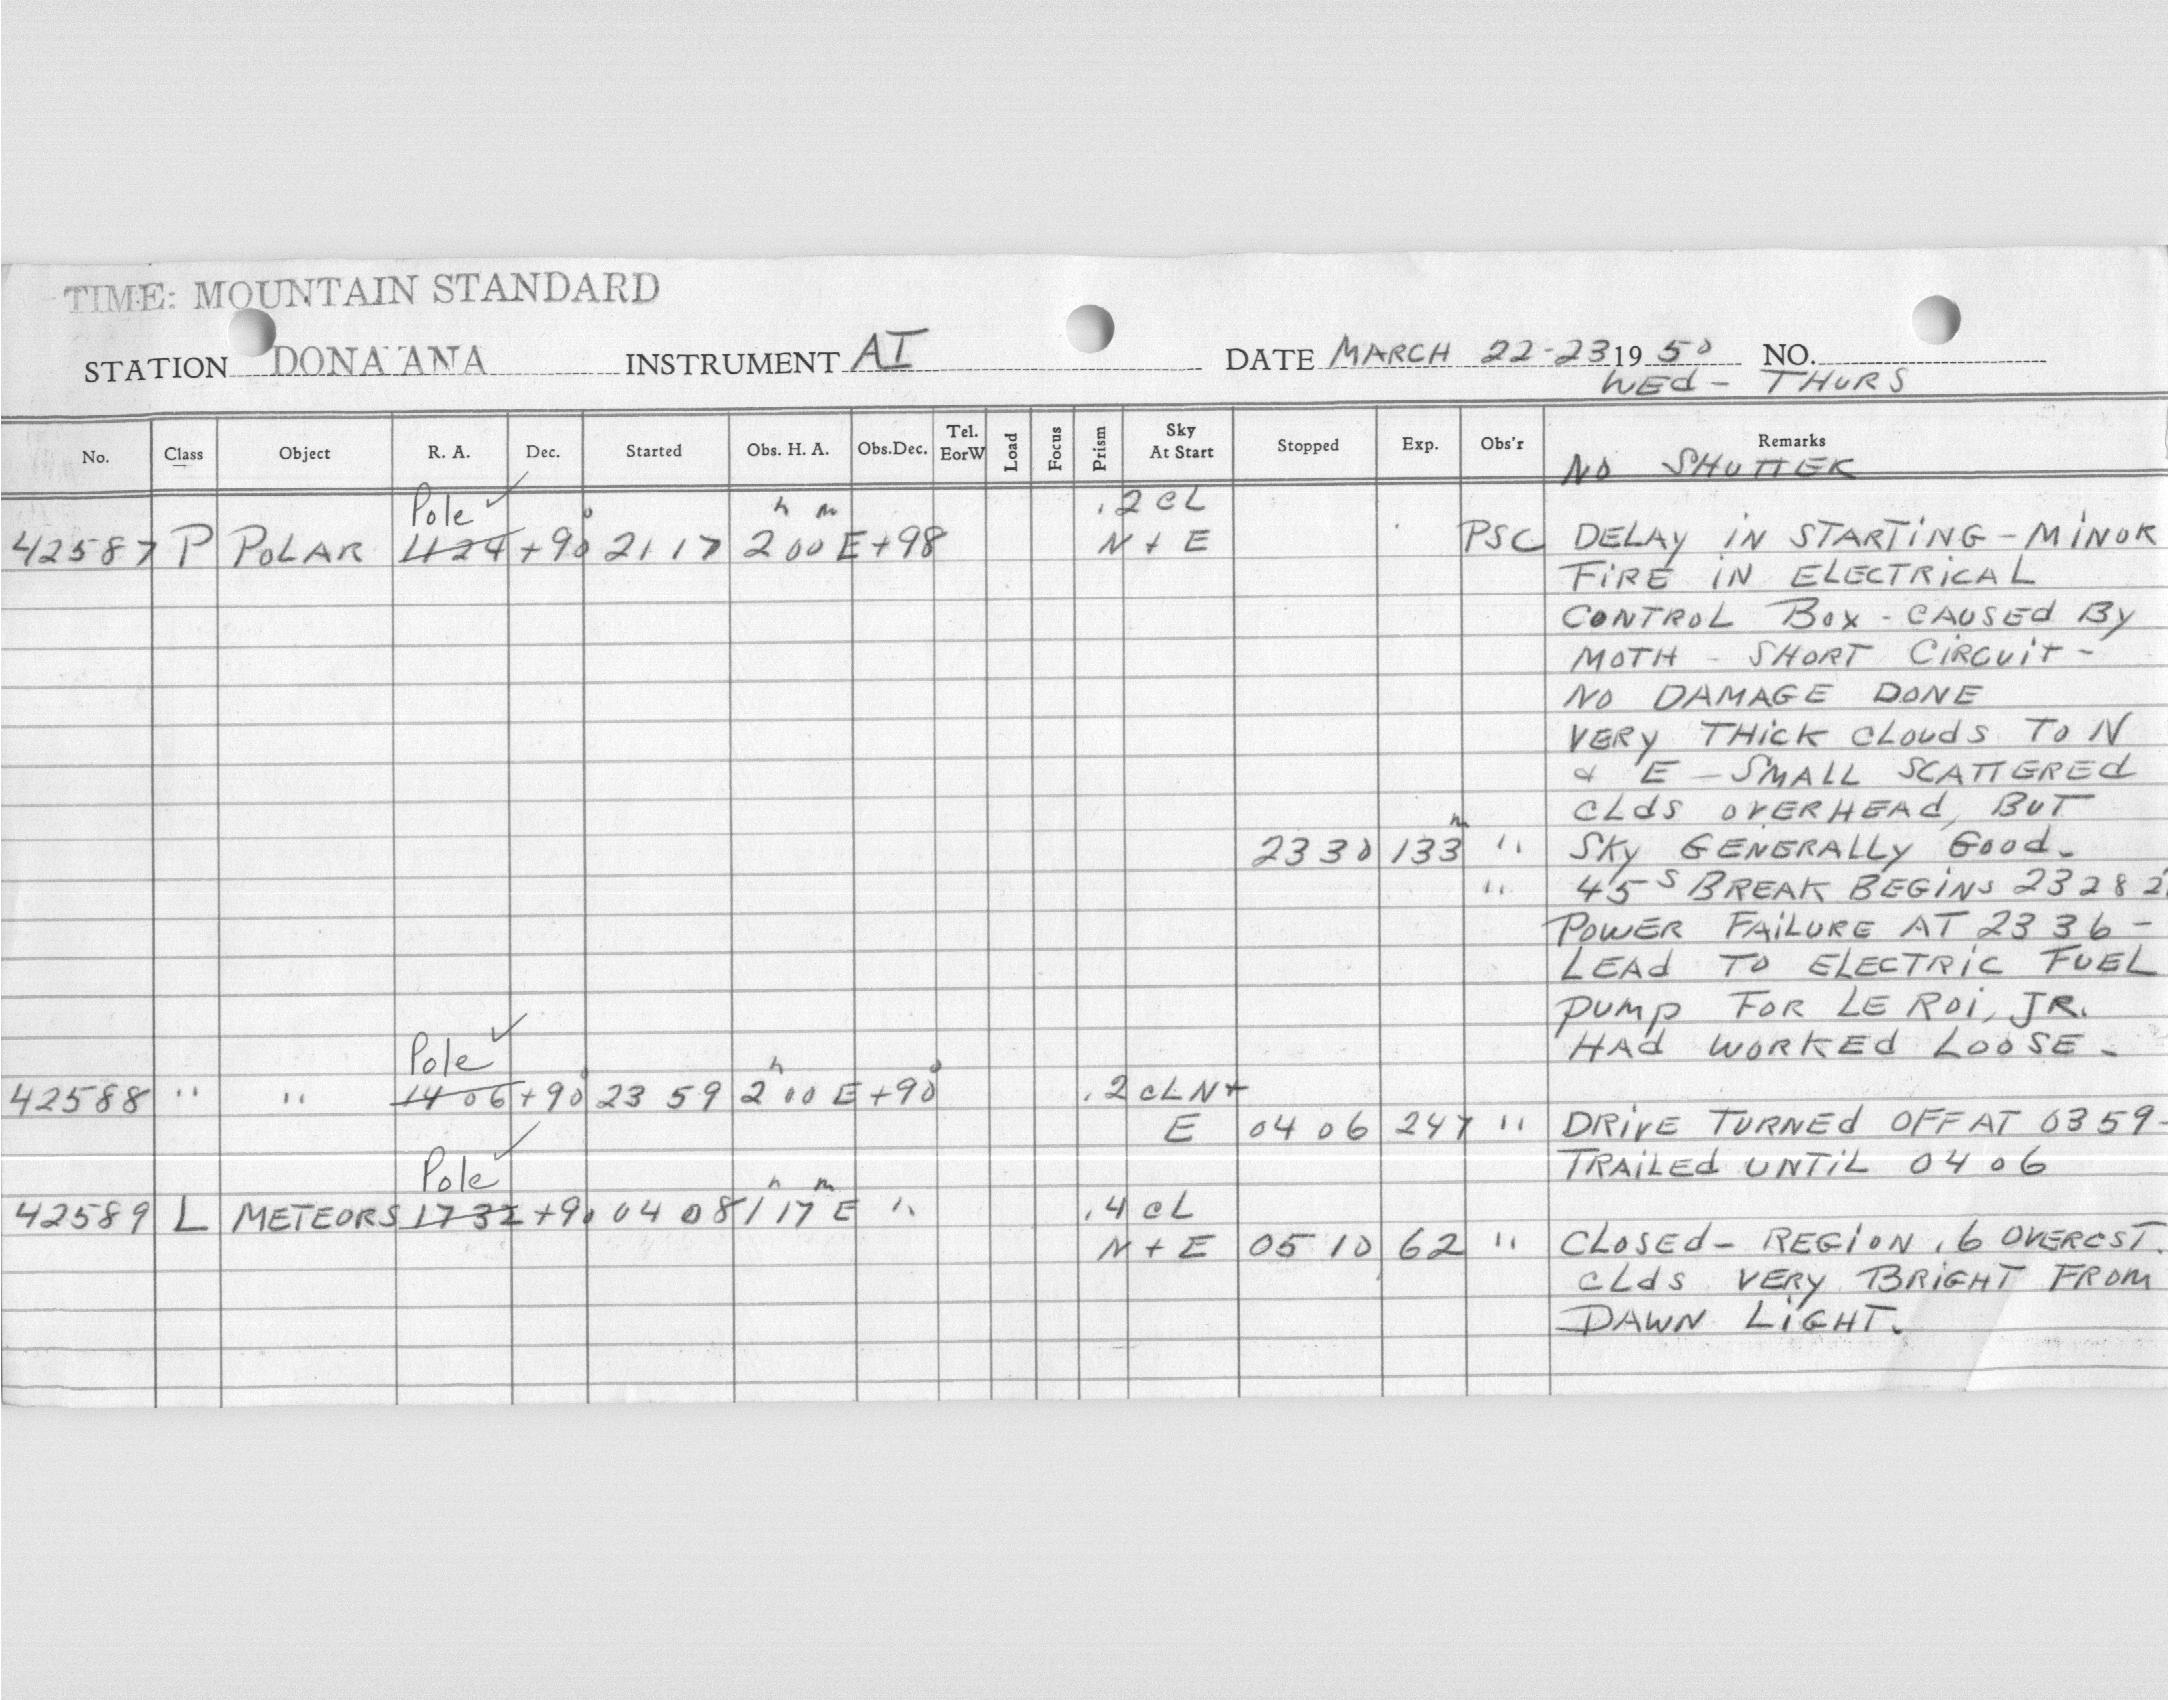 TIME: MOUNTAIN STANDARD
STATION DONA ANA INSTRUMENT AI DATE MARCH 22-23 19 50 NO.
WEd - THURS
No. Class Object R. A. Dec. Started Obs. H. A. Obs.Dec. Tel. EorW Load Focus Prism Sky At Start Stopped Exp. Obs'r Remarks
NO SHUTTER
Pole ✓ h m .2 CL
42587 P POLAR 11 24 +90° 21 17 2 00 E +98 N + E PSC DELAY IN STARTING - MINOR
FIRE IN ELECTRICAL
CONTROL BOX - CAUSEd By
MOTH - SHORT CIRCUIT -
NO DAMAGE DONE
VERY THICK CLOUdS TO N
& E - SMALL SCATTEREd
CLdS OVERHEAd, BUT
23 30 133 m " SKy GENERALLy GOOd.
" 45 S BREAK BEGINS 23 28 2
POWER FAILURE AT 23 36 -
LEAd TO ELECTRIC FUEL
PUMP FOR LE ROI, JR.
HAd WORKEd LOOSE -
Pole ✓ h
42588 " " 14 06 +90° 23 59 2 00 E +90° .2 CL N +
E 04 06 247 " DRIVE TURNEd OFF AT 03 59 -
TRAILEd UNTIL 04 06
Pole ✓ h m
42589 L METEORS 17 32 +90 04 08 1 17 E " .4 CL
N + E 05 10 62 " CLOSEd - REGION .6 OVERCST.
CLdS VERY BRIGHT FROM
DAWN LIGHT.